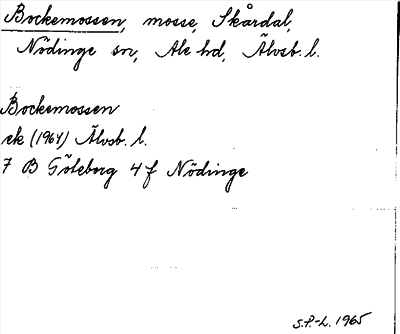 Bockemossen, mosse, Skårdal,
Nödinge sn, Ale hd, Älvsb. l.
Bockemossen
ek (1964) Älvsb. l.
7 B Göteborg 4 f Nödinge
S.P.-L. 1965